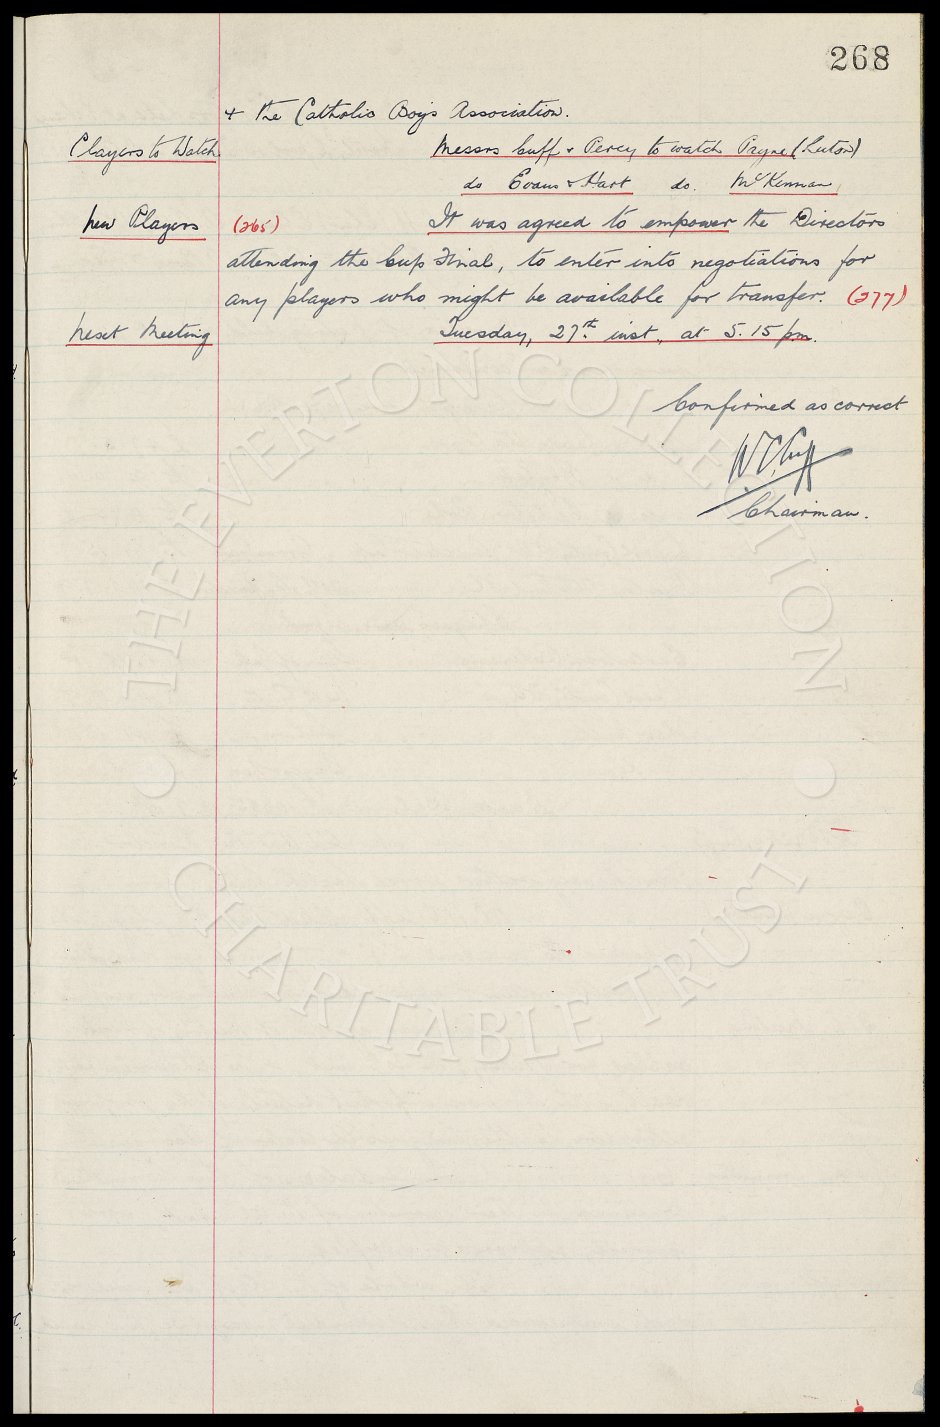 268
+ the Catholic Boys Association.
Players to Watch. Messrs Cuff & Percy to watch Payne (Luton)
do Evans & Hart do. McKennan
New Players (265) It was agreed to empower the Directors
attending the Cup Final, to enter into negotiations for
any players who might be available for transfer. (277)
Next Meeting Tuesday, 27th inst., at 5.15 pm.
Confirmed as correct
W C Cuff
Chairman.
THE EVERTON COLLECTION
CHARITABLE TRUST